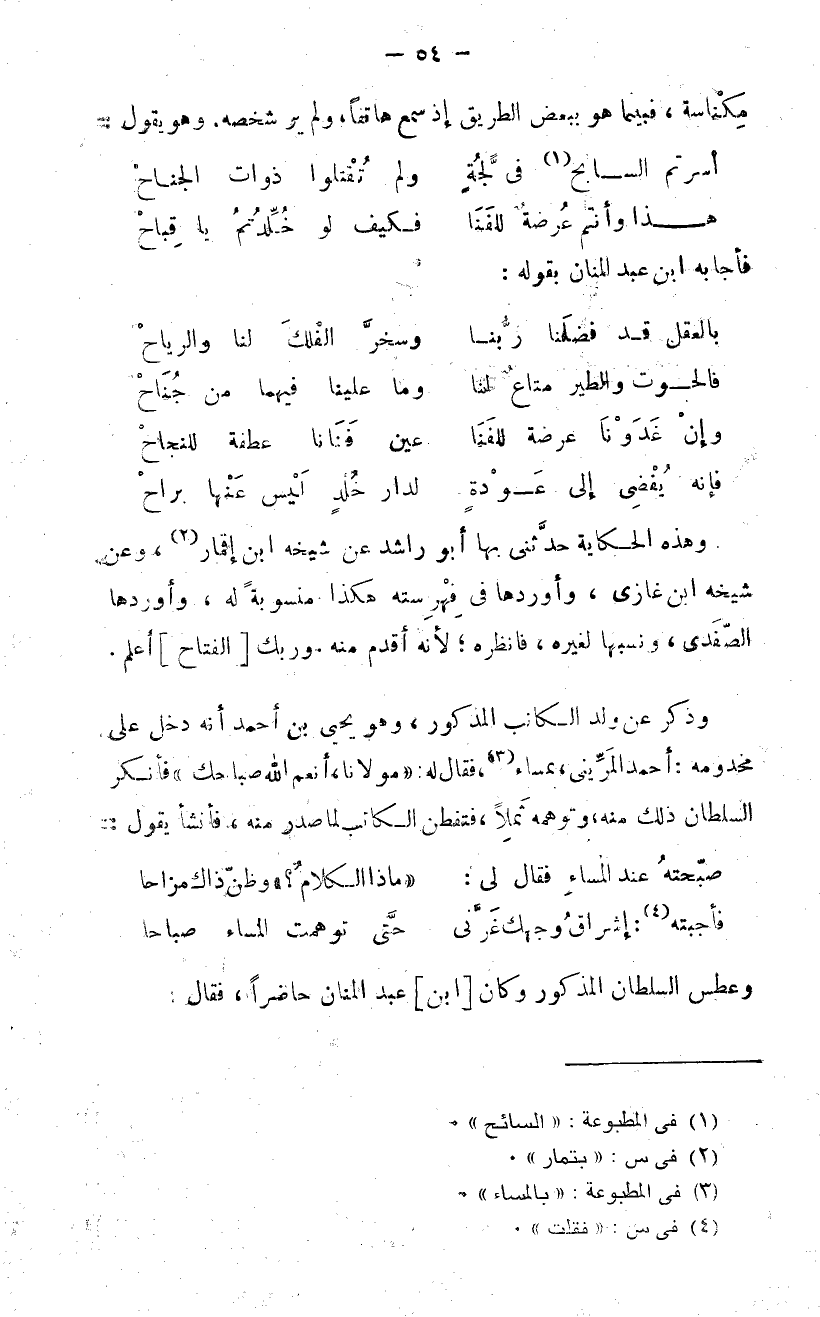 — ٥٤ —
مِكْناسة ، فبينما هو ببعض الطريق إذ سمع هاتفاً، ولم ير شخصه. وهو يقول :
أسرتم الســـابح(١) فى لُجَّةٍ ولم تُفْتلوا ذوات الجناحْ
هـــــذا وأنتم عُرضةٌ للفَنَا فـكيف لو خُلِّدْتُمُ يا قِباحْ
فأجابه ابن عبد المنان بقوله :
بالعقل قـد فضلَنا رَبُّنـا وسخرَّ الفْلكَ لنا والرياحْ
فالحـــوت والطير متاعٌ لنا وما علينا فيهما من جُنَاحْ
وإنْ غَدَوْنَا عرضة للفَنَا عين فَنَانا عطفة للنجاحْ
فإنه يُفْضِى إلى عَـــوْدةٍ لدار خُلْدٍ لَيْس عَنْها براحْ
وهذه الحـكاية حدَّثنى بها أبو راشد عن شيخه ابن إقمار(٢) ، وعن
شيخه ابن غازى ، وأوردها فى فِهْرِسته هكذا منسوبةً له ، وأوردها
الصّفَدى ، ونسبها لغيره ، فانظره ؛ لأنه أقدم منه . وربك [ الفتاح ] أعلم .
وذكر عن ولد الـكاتب المذكور ، وهو يحيى بن أحمد أنه دخل على
مخدومه : أحمد المَرِّينى ، بمساء(٣)، فقال له: « مولانا، أنعم الله صباحك » فأنـكر
السلطان ذلك منه، وتوهمه ثَمِلاً ، فتفطن الـكاتب لما صدر منه ، فأنشأ يقول :
صبّحتهُ عند المساءِ فقال لى : « ماذا الـكلامُ؟ » وظنّ ذاك مزاحا
فأجبته(٤): إشراقُ وجهِك غَرَّنى حتَّى توهمت المساء صباحا
وعطس السلطان المذكور وكان [ ابن ] عبد المنان حاضراً ، فقال :
(١) فى المطبوعة : « السائح » .
(٢) فى س : « بتمار » .
(٣) فى المطبوعة : « بالمساء » .
(٤) فى س : « فقلت » .